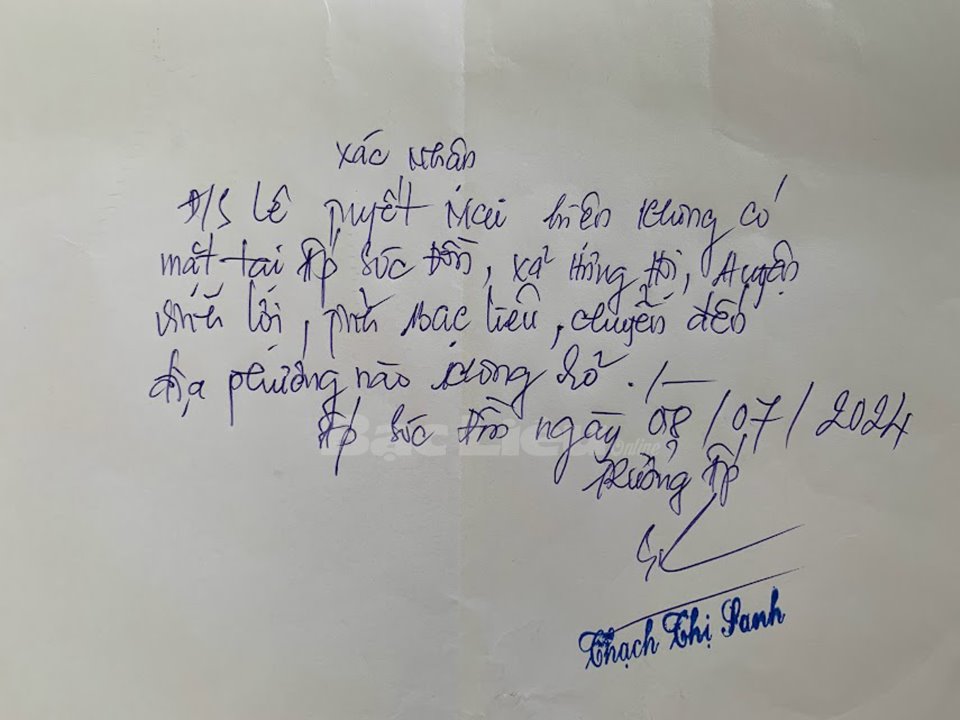 Xác Nhân
Đ/S Lê Tuyết Mai hiện không có
mặt tại Ấp Sóc Đồn, xã Hưng Hội, Huyện
Vĩnh Lợi, tỉnh Bạc Liêu, chuyển đến
địa phương nào không rõ ./—
Ấp Sóc Đồn ngày 08/07/2024
Bạc Liêu Online
Trưởng Ấp
Thạch Thị Sanh